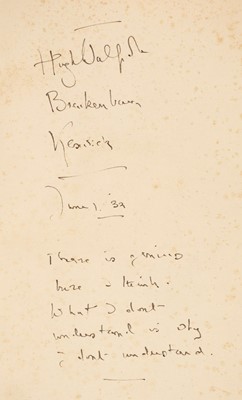 Hugh Walpole
Brackenburn
Keswick
June 1. '32
There is genius
here - I think.
What I don't
understand is why
I don't understand.